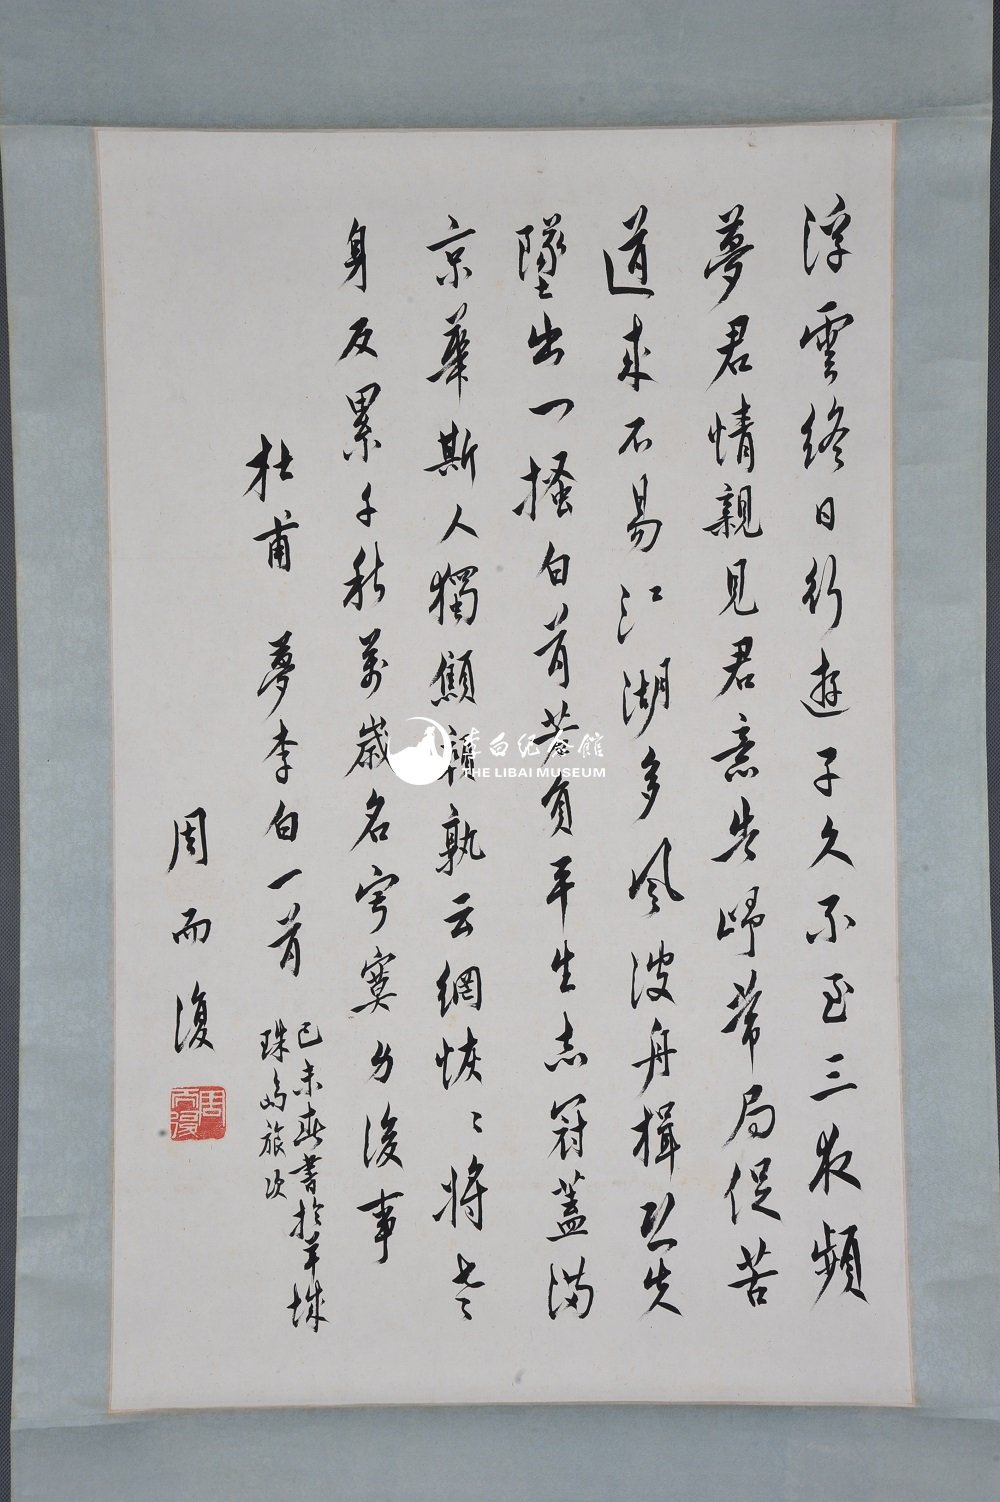 浮雲終日行遊子久不至三夜頻
夢君情親見君意告歸常局促苦
道來不易江湖多風波舟楫恐失
墜出一搔白首若負平生志冠蓋滿
京華斯人獨顦顇孰云網恢〻將老
身反累千秋萬歲名寂寞身後事
杜甫 夢李白一首
己未春書於羊城
珠島旅次
周而復
周而復
李白纪念馆
THE LIBAI MUSEUM